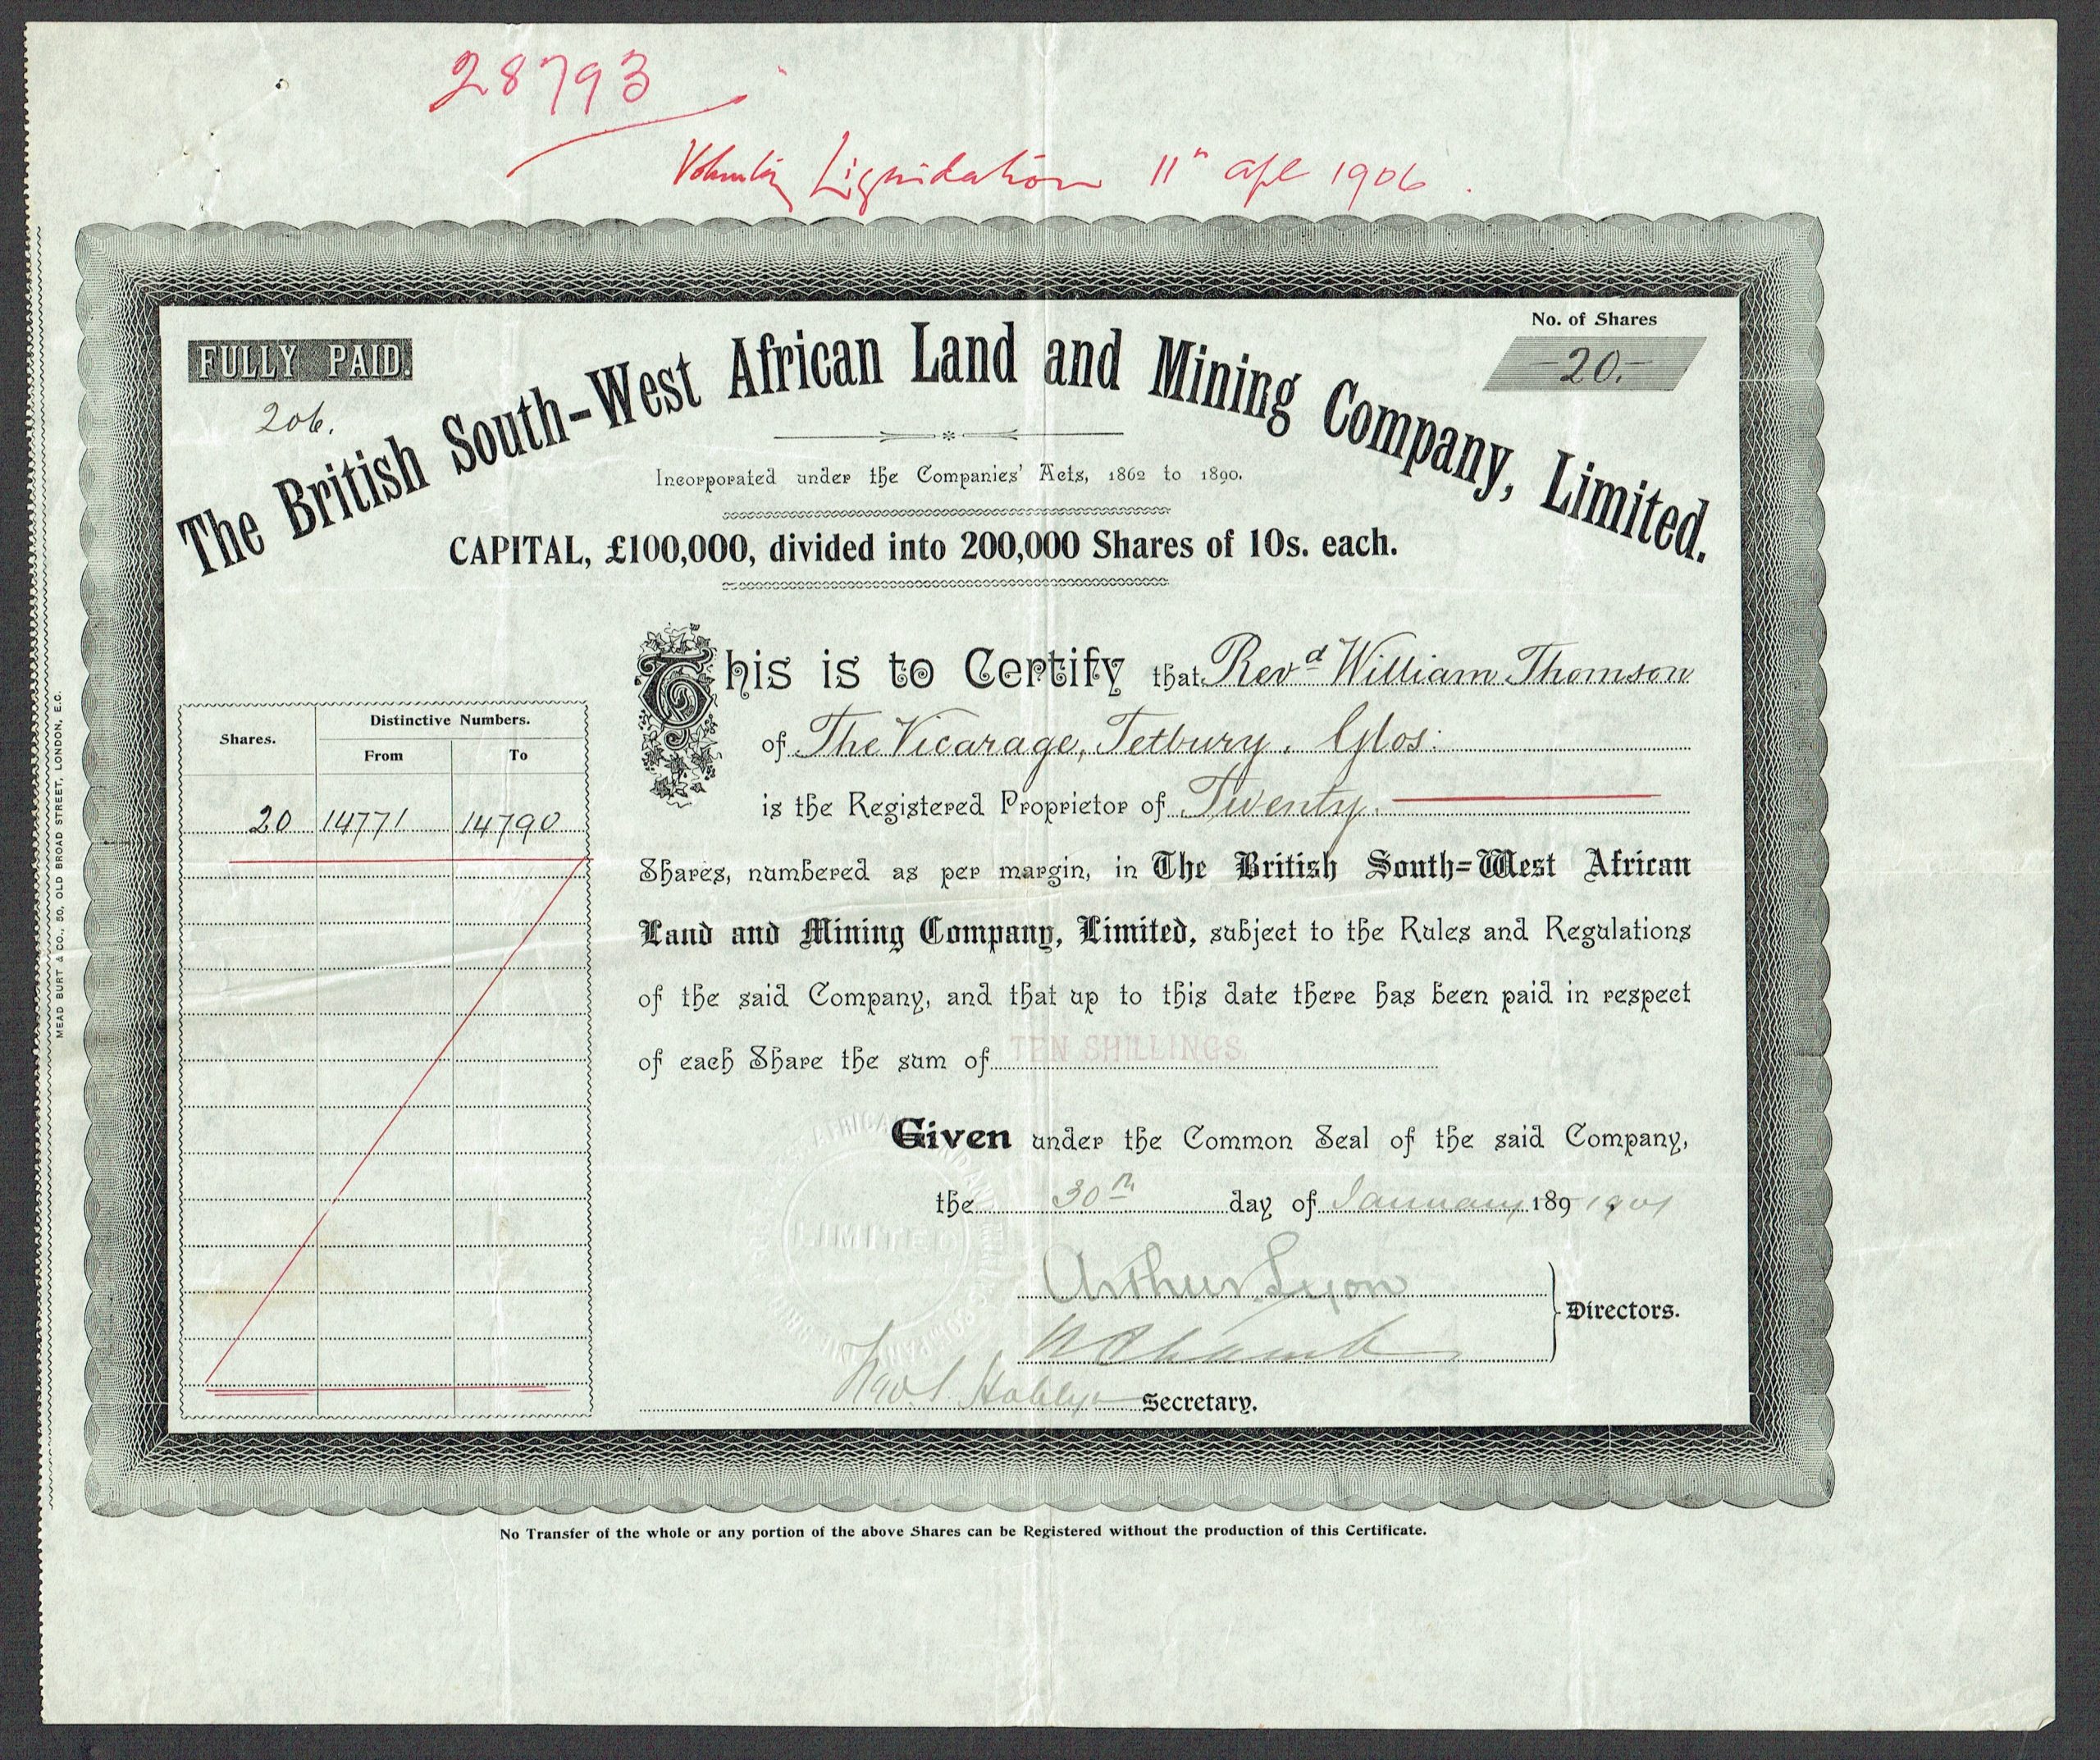 28793
Voluntary Liquidation 11th apl 1906.
No. of Shares
-20.-
FULLY PAID.
206.
The British South-West African Land and Mining Company, Limited.
Incorporated under the Companies' Acts, 1862 to 1890.
CAPITAL, £100,000, divided into 200,000 Shares of 10s. each.
This is to Certify that Revd William Thomson
of The Vicarage, Tetbury. Glos:
is the Registered Proprietor of Twenty.
Shares, numbered as per margin, in The British South=West African
Land and Mining Company, Limited, subject to the Rules and Regulations
of the said Company, and that up to this date there has been paid in respect
of each Share the sum of TEN SHILLINGS
Given under the Common Seal of the said Company,
the 30th day of January 189 1901
Arthur Lyon
Directors.
Secretary.
Shares. Distinctive Numbers.
From To
20 14771 14790
LIMITED
MEAD BURT & CO., 50, OLD BROAD STREET, LONDON, E.C.
No Transfer of the whole or any portion of the above Shares can be Registered without the production of this Certificate.